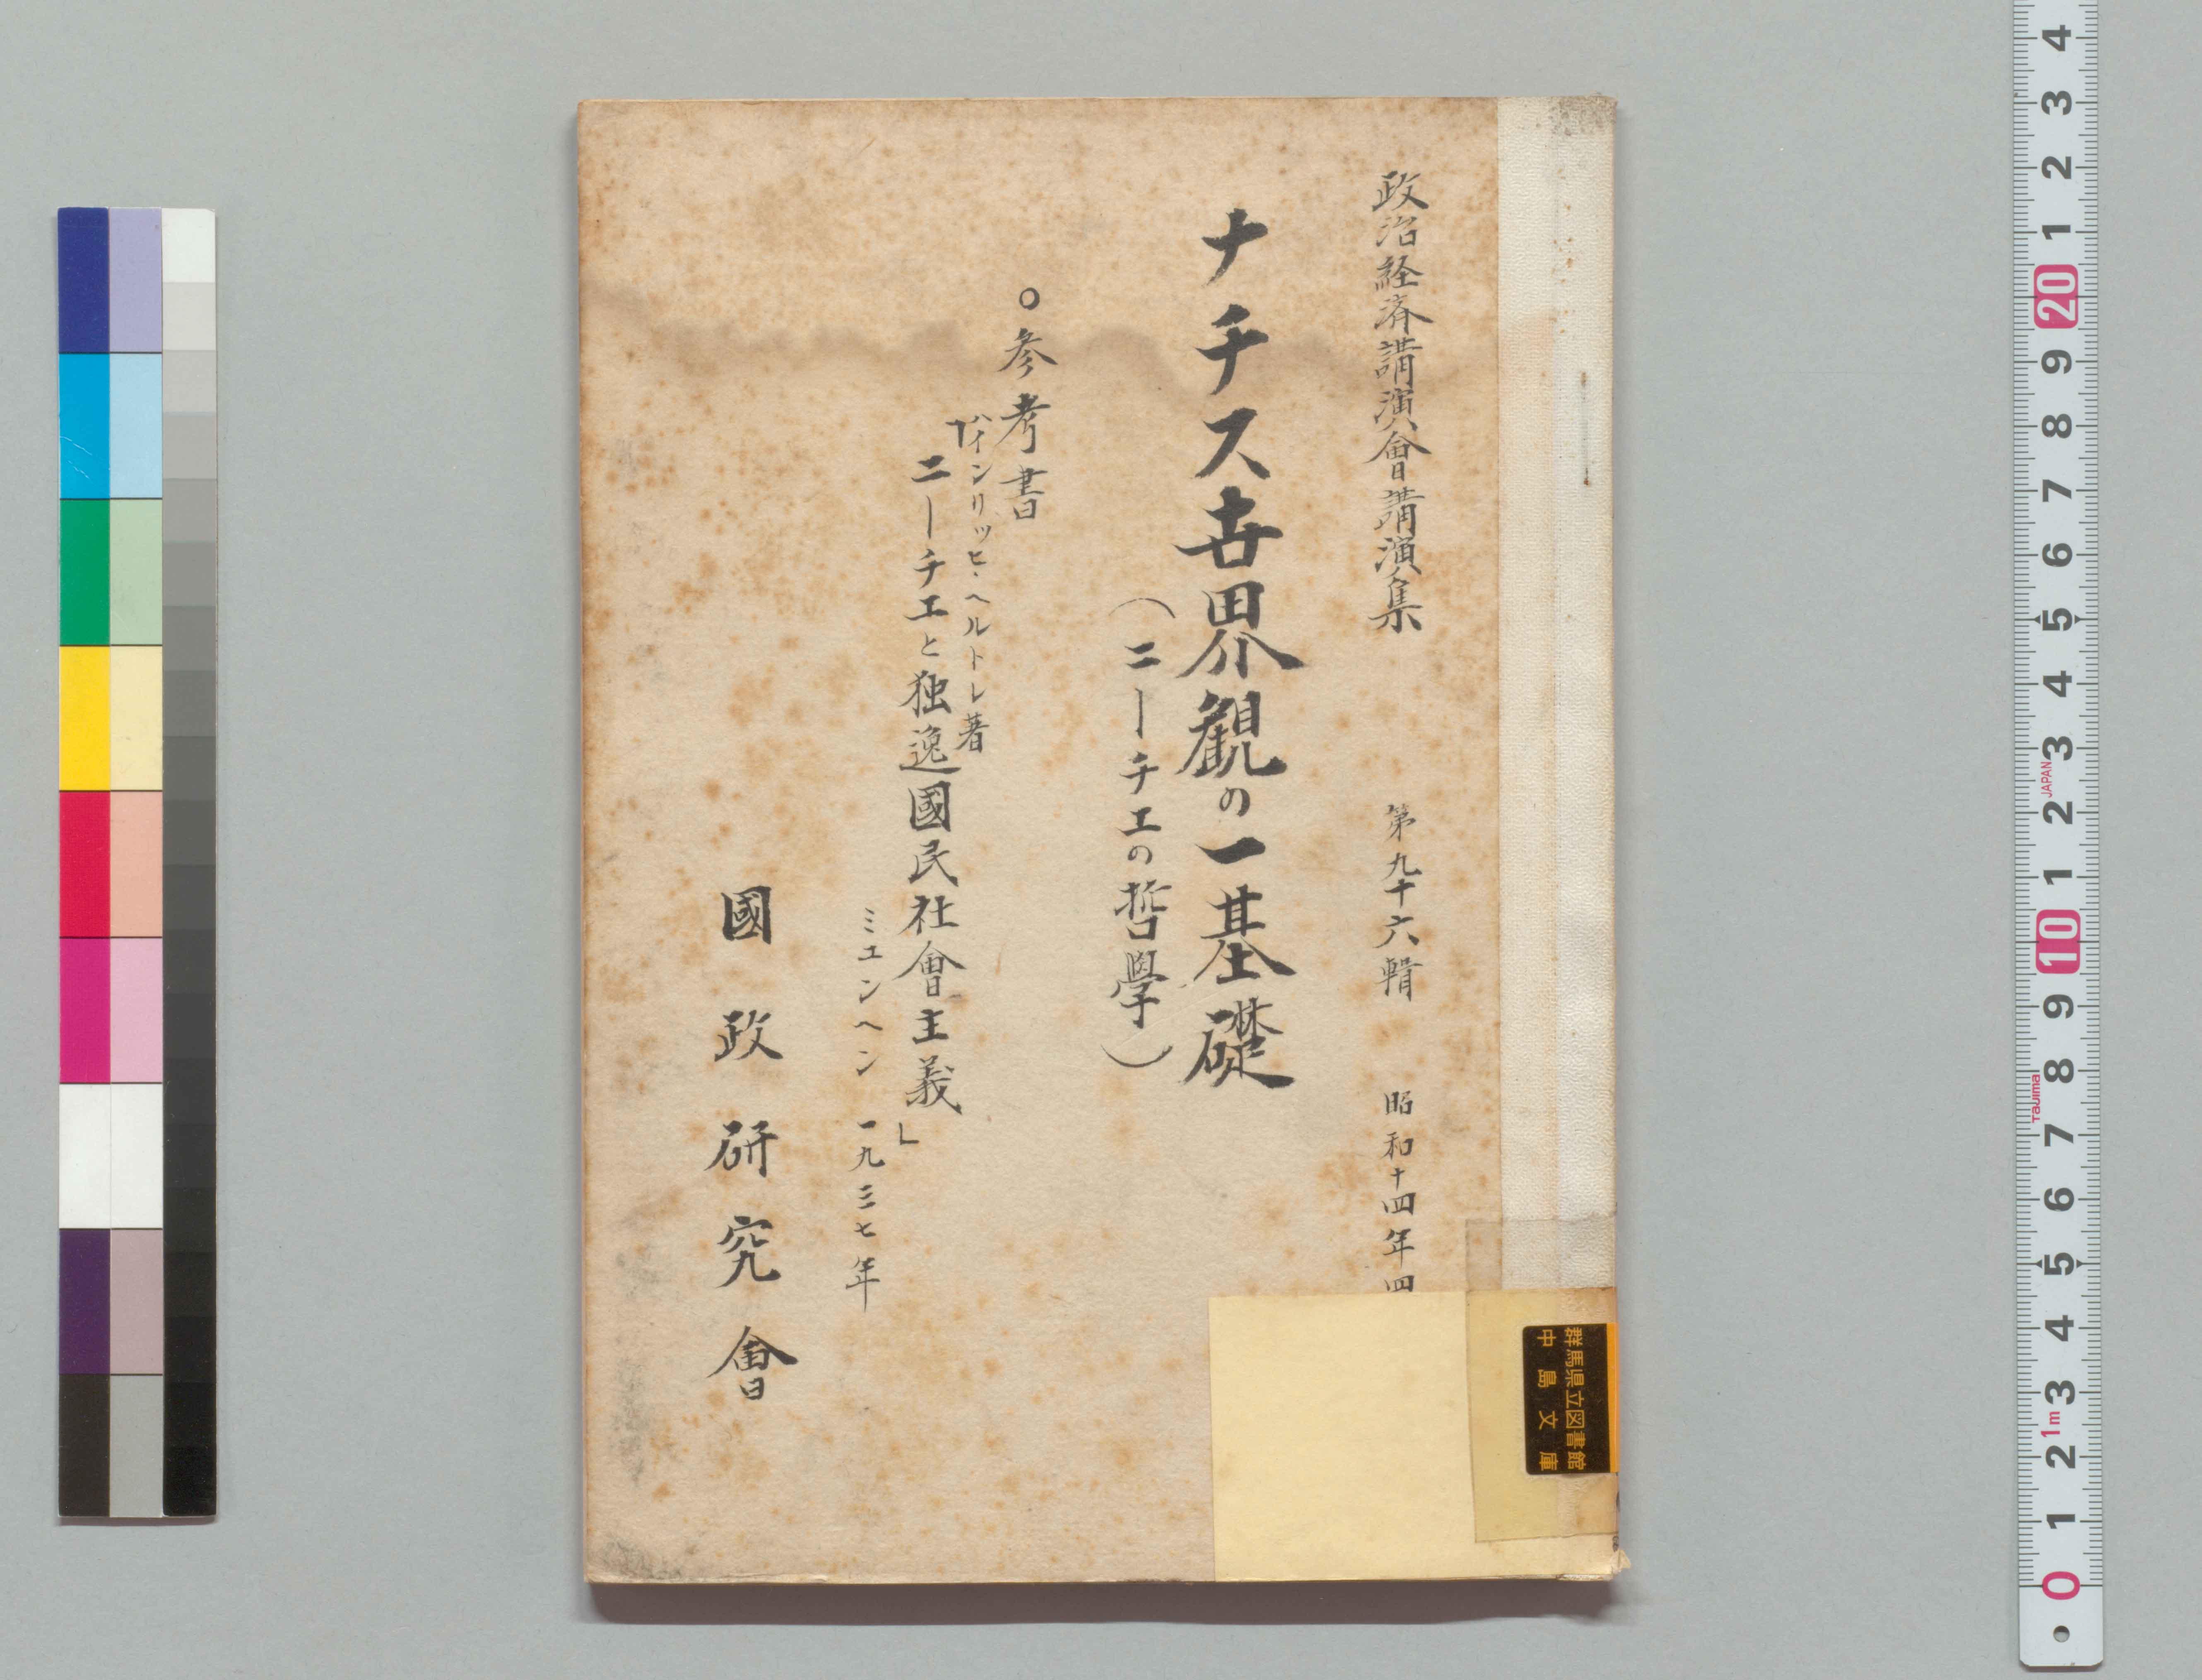 政治経済講演會講演集　第九十六輯　昭和十四年四
ナチス世界観の一基礎
（ニーチエの哲學）
○参考書
ハインリッヒ・ヘルトレ著
「ニーチエと独逸國民社會主義」
ミユンヘン　一九三七年
國政研究會
群馬県立図書館
中島文庫
4
3
2
1
20
9
8
7
6
5
4
3
JAPAN
2
1
10
9
8
Tajima
7
6
5
4
3
1m
2
1
0